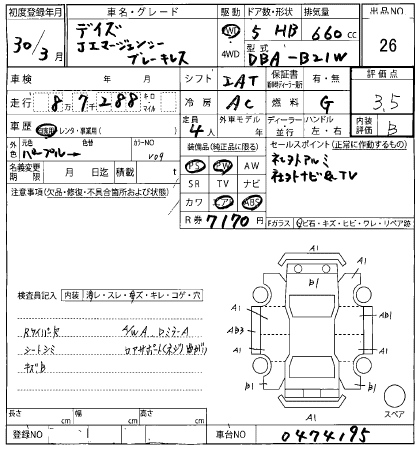 初度登録年月 車名・グレード 駆動 ドア数・形状 排気量 出品NO
30/3月 デイズ 2WD 5 HB 660cc 26
Jエマージェンシー 4WD 型式
ブレーキレス DBA-B21W
車検 年 月 シフト IAT 保証書 有・無 評価点
走行 87288 キロ・マイル 冷房 AC 燃料 G 3.5
車歴 自家用 レンタ・事業用( ) 定員 4人 外車モデル 年 ディーラー 並行 ハンドル 左・右 内装評価 B
外色 元色 パープル 色替 カラーNO V09 装備品(純正品に限る) セールスポイント(正常に作動するもの)
名義変更期限 月 日迄 積載 t PS PW AW 社外アルミ
SR TV ナビ 社外ナビ&TV
注意事項(欠品・修復・不具合箇所および状態) カワ エアB ABS
R券 7170円 Fガラス 飛石・キズ・ヒビ・ワレ・リペア跡
検査員記入 内装 汚レ・スレ・キズ・キレ・コゲ・穴
A1
A1 B1 A1
AB3 AB1
A1 A1
B1 B1
A1
A/W A DミラーA
シートシミ コアサポート(ネジ)曲がり
キズB
スペア
長さ cm 幅 cm 高さ cm
登録NO 車台NO 0474195